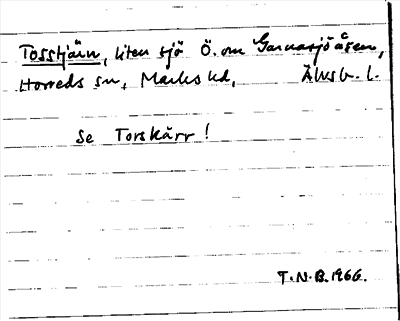 Tosstjärn, liten sjö Ö. om Garnasjöåsen,
Horreds sn, Marks hd, Älvsb. l.
Se Torskärr!
T.N.B. 1966.